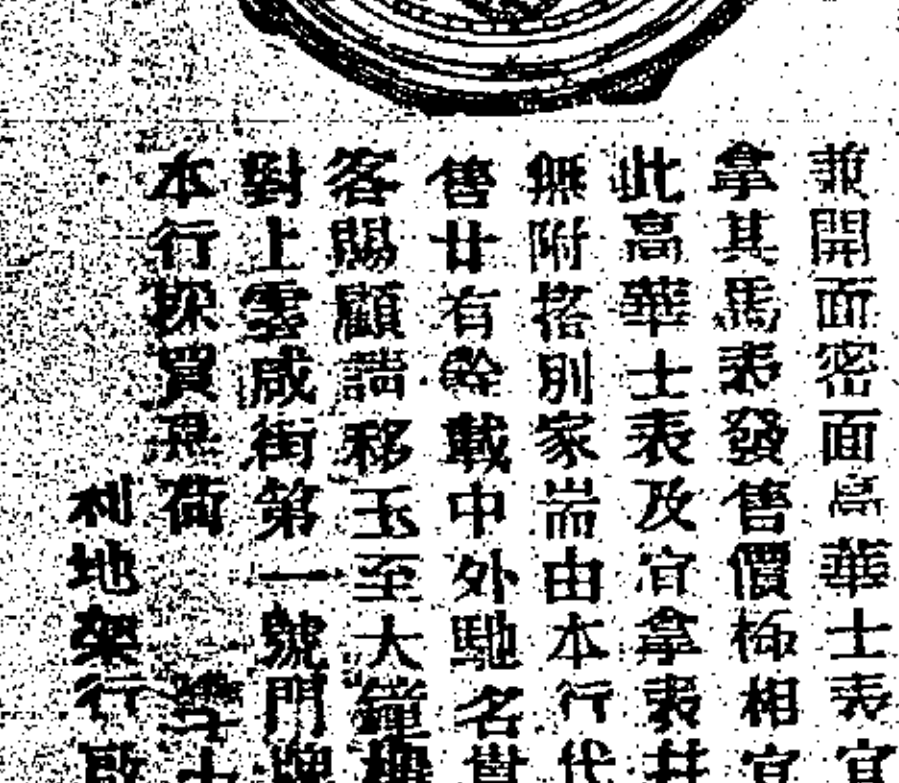 兼開面密面高華士表宜
拿其馬表發售價極相宜
此高華士表及宜拿表并
無附搭別家耑由本行代
售廿有餘載中外馳名貴
客賜顧請移玉至大鐘樓
對上雲咸街第一號門牌
本行採買為荷
利地架行啟